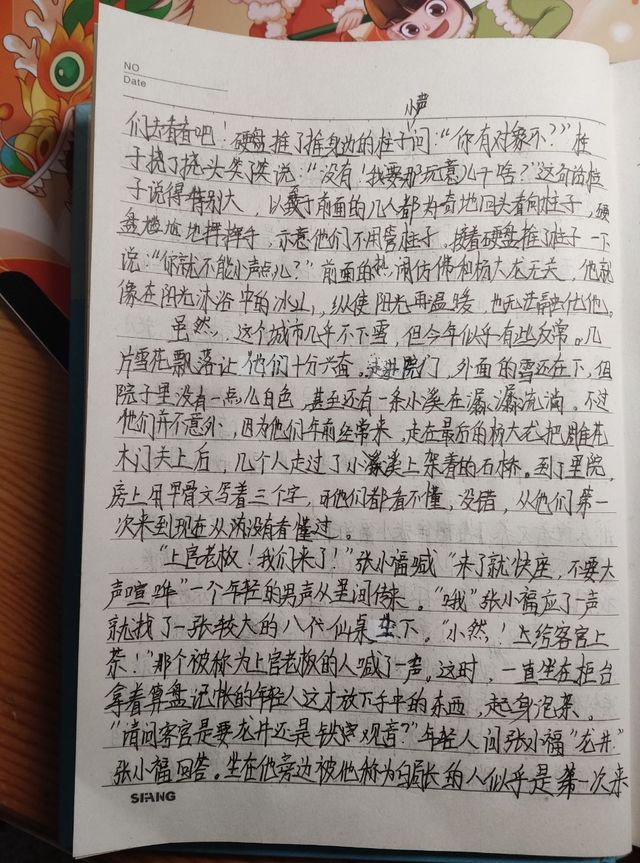 NO
Date
小声
们去看看吧！硬盘推了推身边的柱子问：“你有对象不？”柱
子挠了挠头笑了笑说：“没有！我要那玩意儿干啥？”这句话柱
子说得特别大，以至于前面的几人都好奇地回头看向柱子，硬
盘尴尬地挥挥手，示意他们不用管柱子。接着硬盘推了柱子一下
说：“你就不能小声点儿？”前面的热闹仿佛和杨大龙无关，他就
像在阳光沐浴中的冰山，纵使阳光再温暖，也无法融化他。
虽然，这个城市几乎不下雪，但今年似乎有些反常。几
片雪花飘落让他们十分兴奋。走进院门，外面的雪还在下，但
院子里没有一点儿白色，甚至还有一条小溪在潺潺流淌。不过
他们并不意外，因为他们年前经常来，走在最后的杨大龙把雕花
木门关上后，几个人走过了小溪上架着的石桥。到了里院，
房上用甲骨文写着三个字，可他们都看不懂，没错，从他们第一
次来到现在从没有看懂过。
“上官老板！我们来了！”张小福喊“来了就快座，不要大
声喧哗”一个年轻的男声从里间传来。“哦”张小福应了一声
就找了一张较大的八仙桌坐下。“小然！给客官上
茶！”那个被称为上官老板的人喊了一声。这时，一直坐在柜台
拿着算盘记帐的年轻人这才放下手中的东西，起身泡茶。
“请问客官是要龙井还是铁观音？”年轻人问张小福“龙井”
张小福回答。坐在他旁边被他称为局长的人似乎是第一次来
SIANG